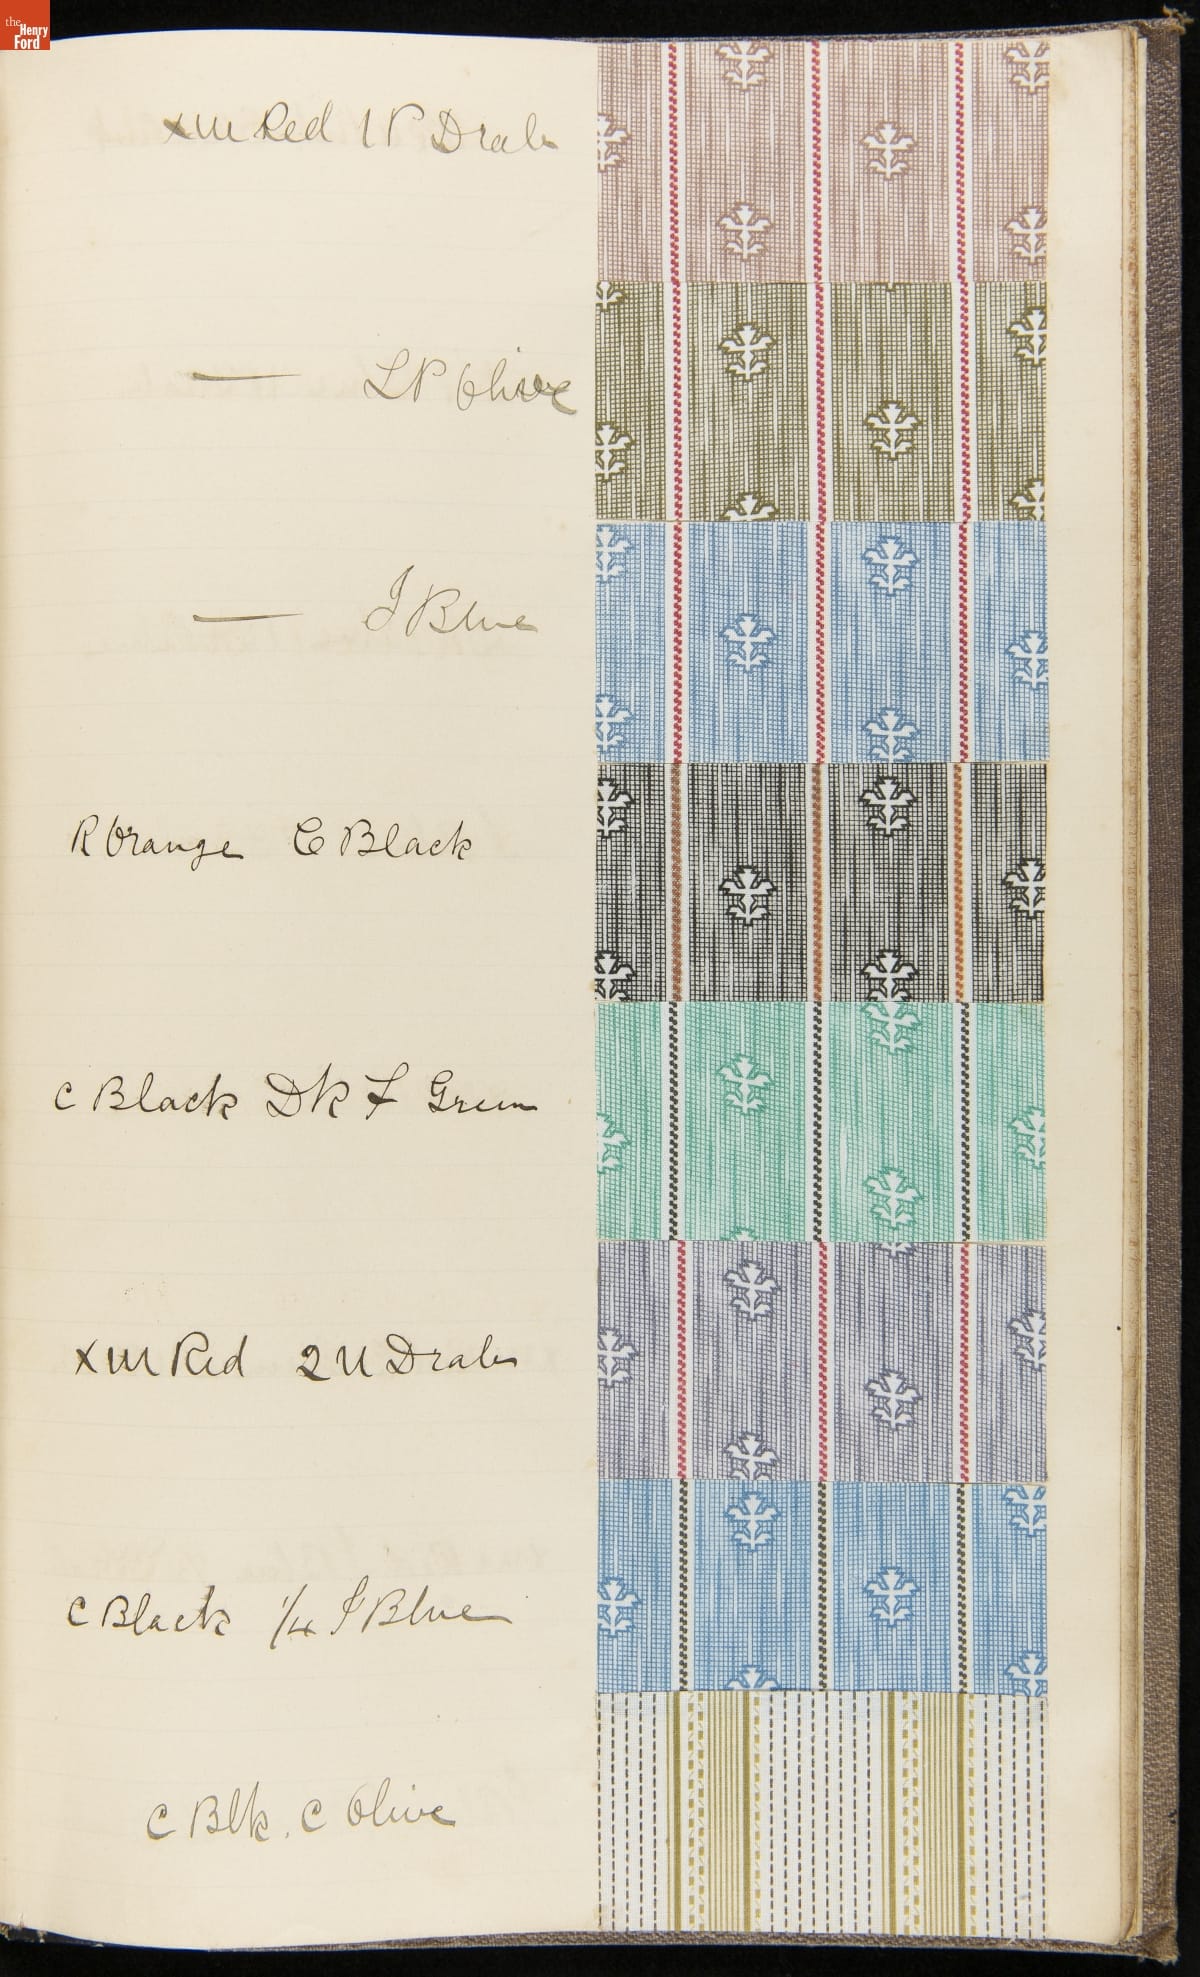 the Henry Ford
XIII Red 1P Drab
— LP Olive
— J Blue
R Orange C Black
C Black Dk F Green
XIII Red 2 U Drab
C Black 1/4 J Blue
C Blk. C Olive